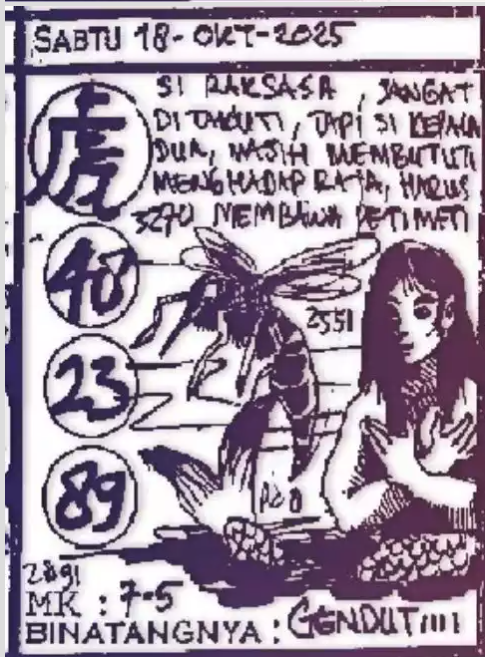 SABTU 18-OKT-2025
SI RAKSASA, SANGAT
DITAKUTI, TAPI SI KEPALA
DUA, MASIH MEMBUTUTI
MENGHADAP RAJA, HARUS
3270 MEMBAWA PETI MATI
虎
40
23
89
2551
2891
MK : 7-5
BINATANGNYA : GENDUT